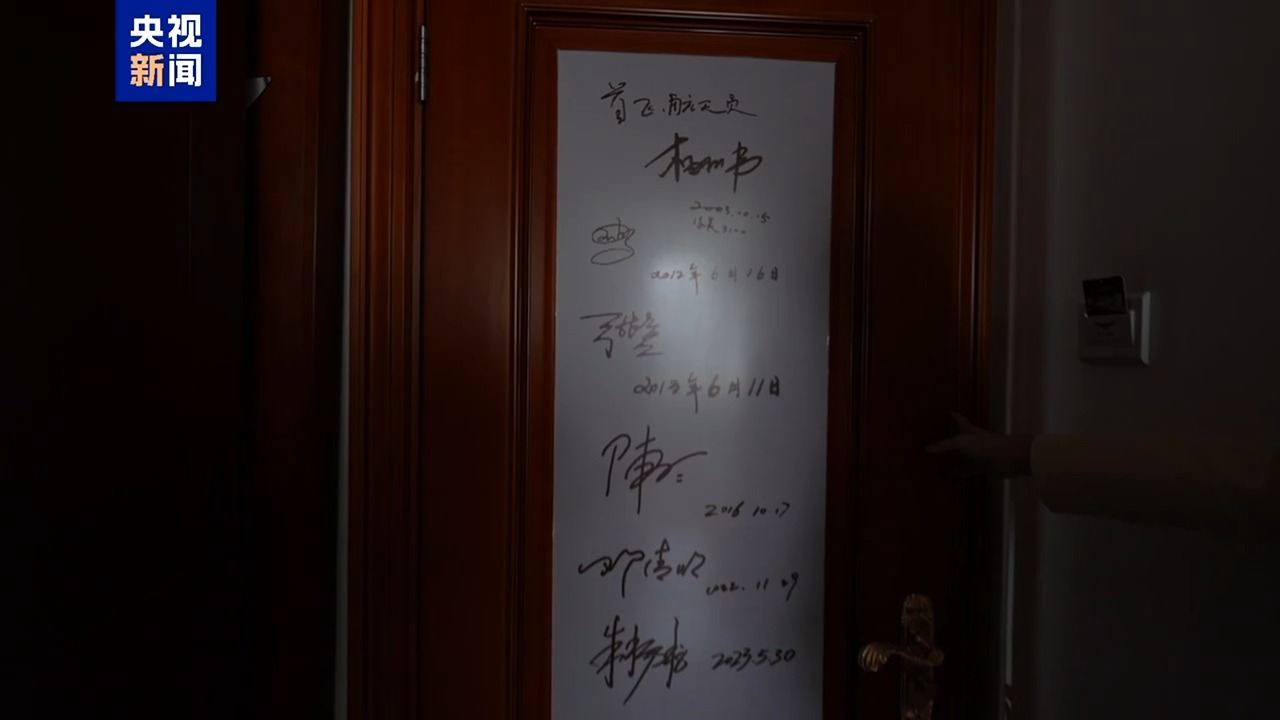 央视
新闻
首飞航天员
杨利伟
2003.10.15
2012年6月16日
2013年6月11日
陈冬
2016.10.17
邓清明 2022.11.29
朱杨柱 2023.5.30